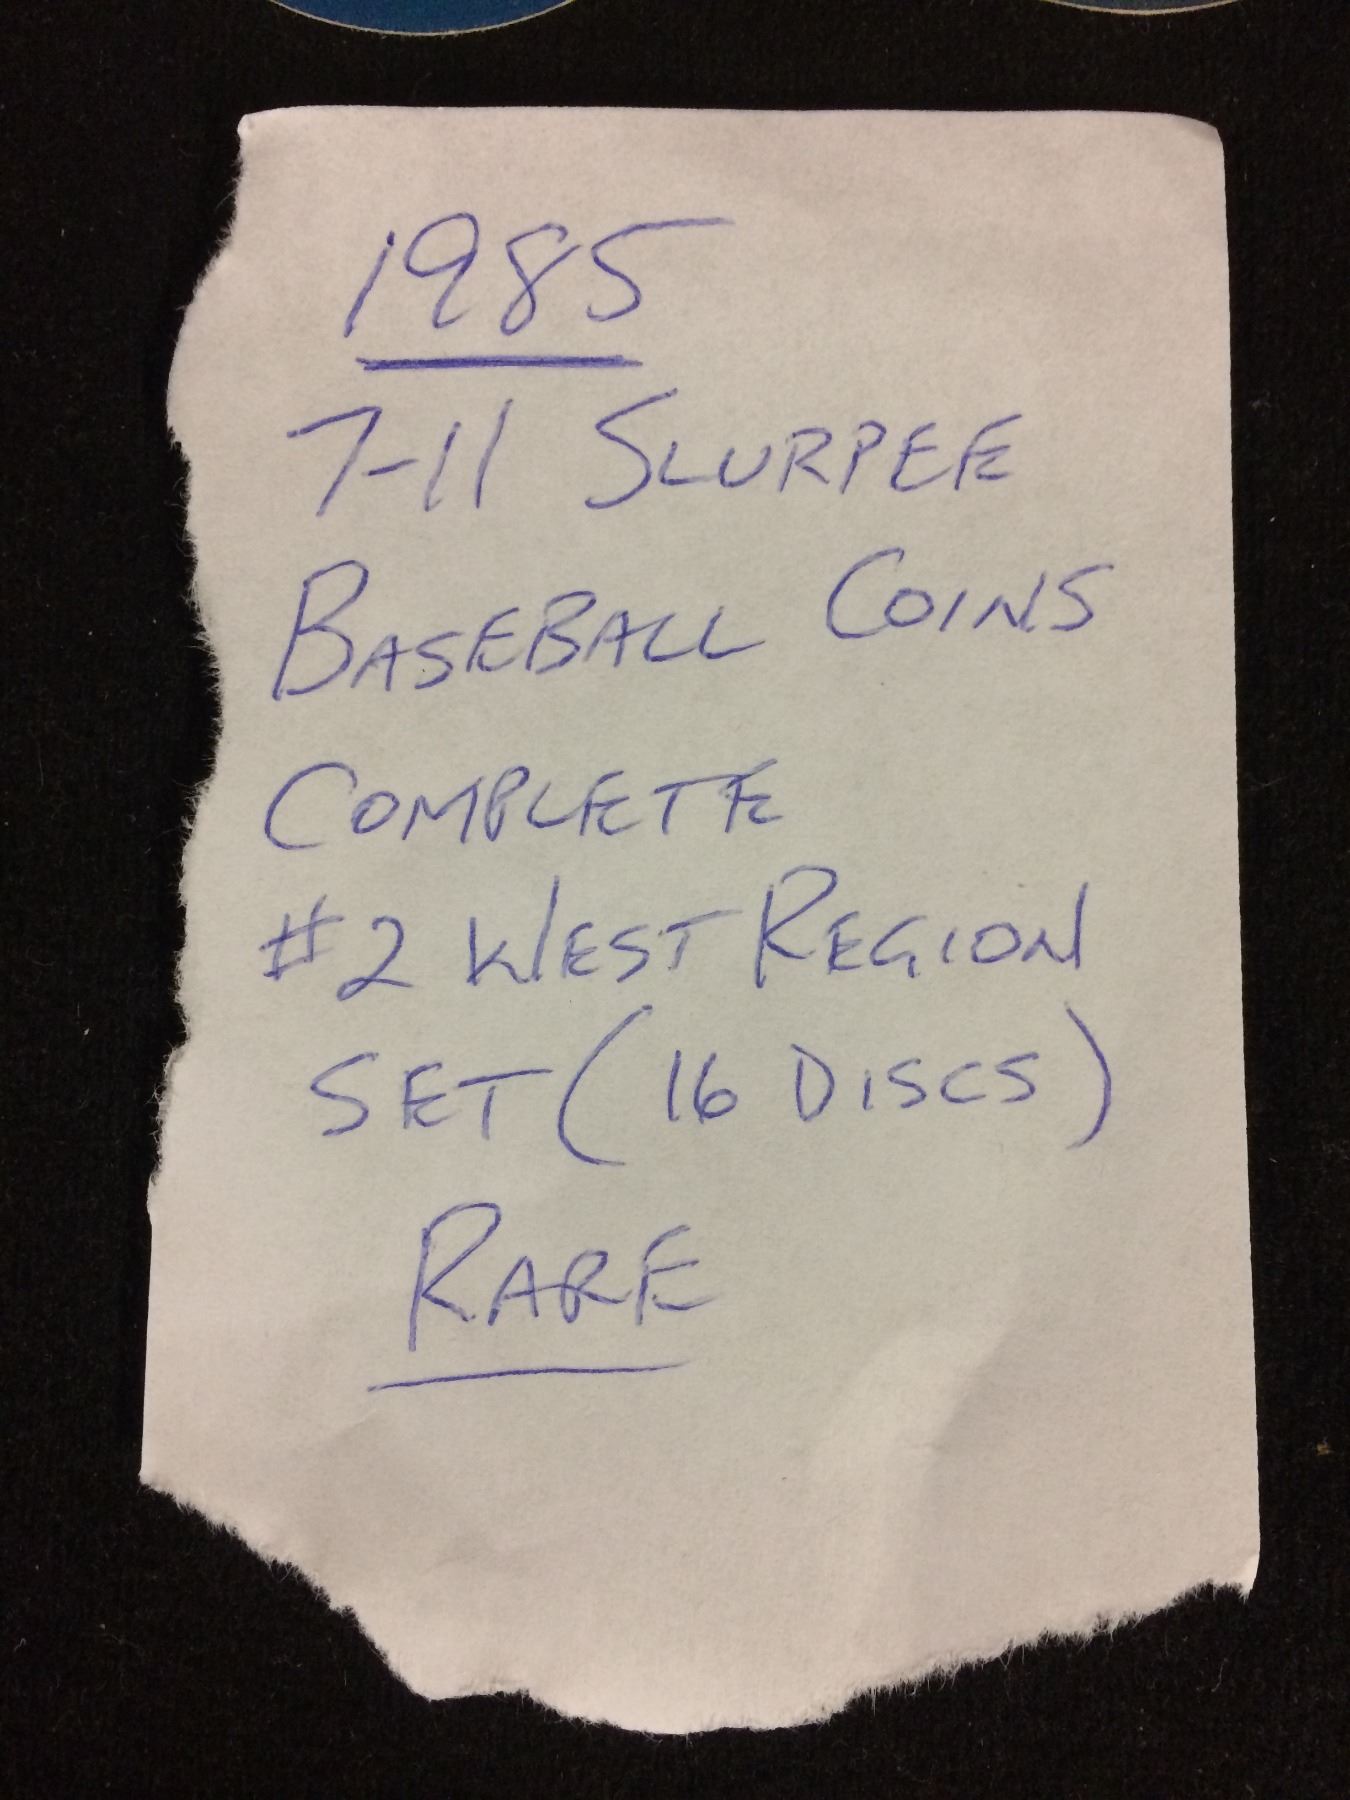 1985
7-11 SLURPEE
BASEBALL COINS
COMPLETE
#2 WEST REGION
SET (16 DISCS)
RARE